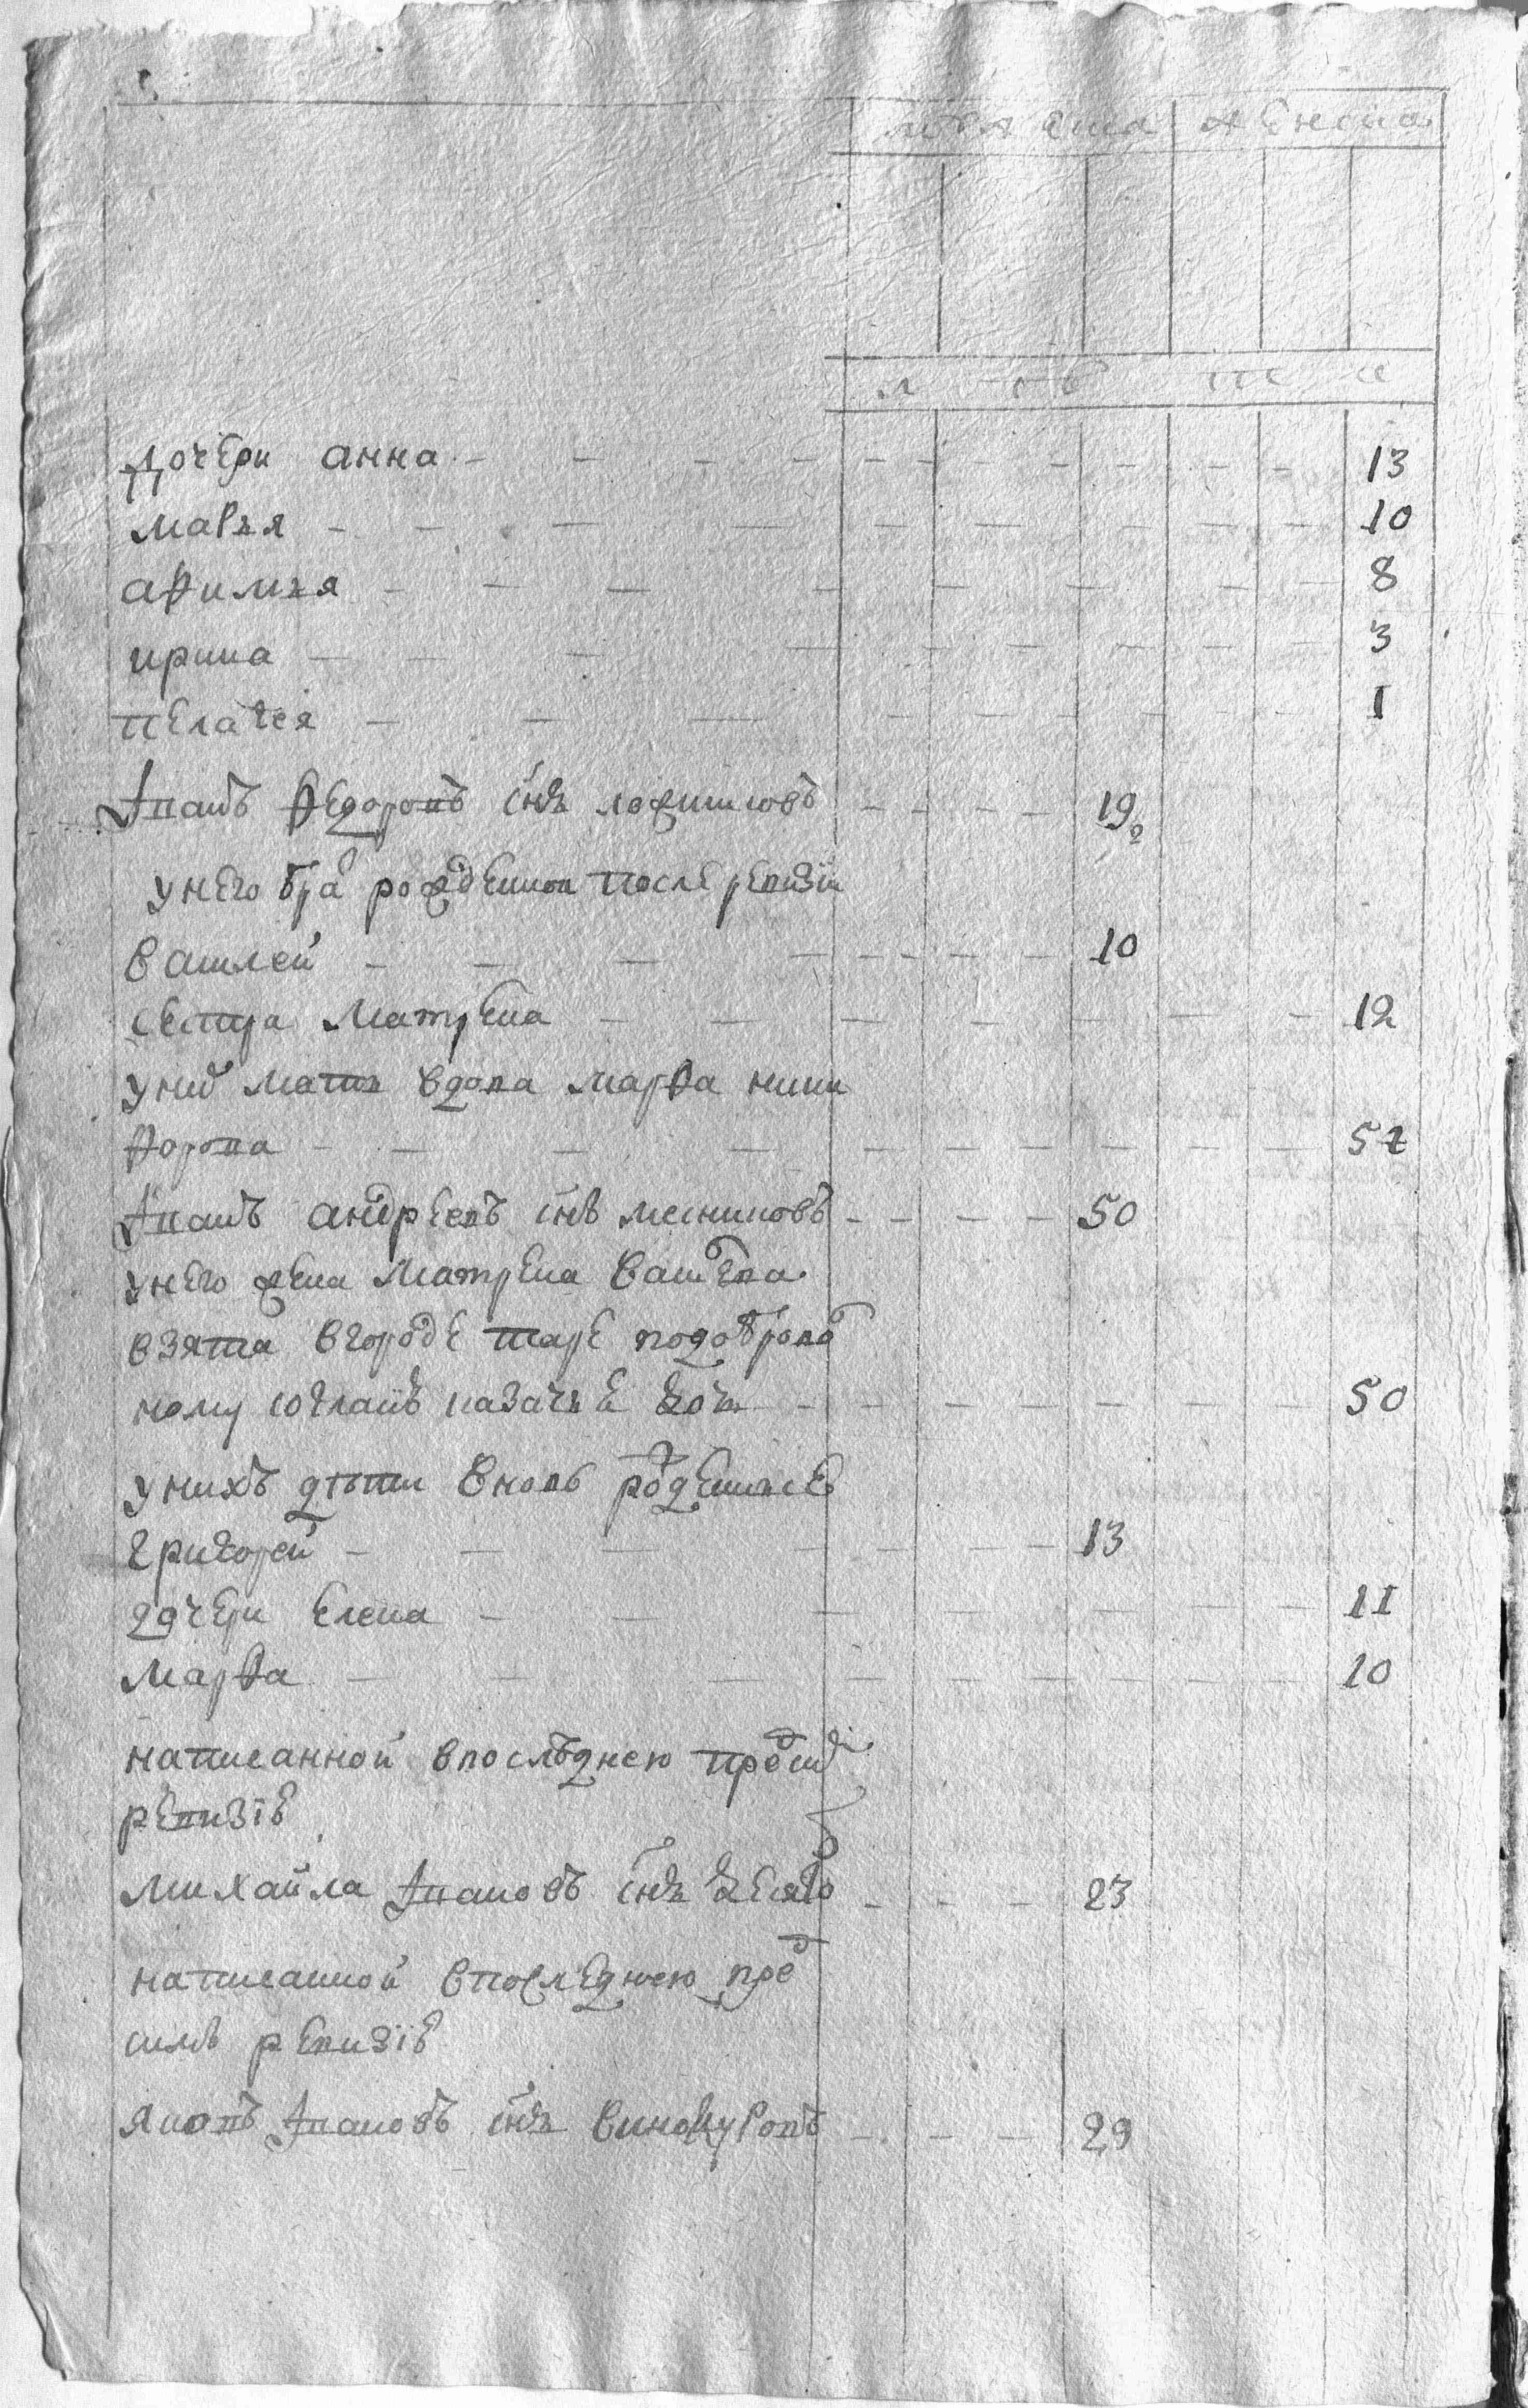 мужеска женска
л т е т а
Дочери анна 13
марья 10
афимья 8
ирина 3
пелагея 1
Иванъ федоровъ снъ 19
у него бра рожденной после ревизіи
василей 10
сестра матрена 12
у них мать вдова марфа ники
форова 57
Иванъ андреевъ снъ месниковъ 50
у него жена матрена
взята в городе таре по доброво
ному согласию казачья дочь 50
у нихъ дѣти вновь родившиеся
григорей 13
дочери елена 11
марфа 10
написанной в последнею пред сим
ревизіе
михайла Ивановъ снъ 23
написанной в последнею пред
симъ ревизіе
яковъ Ивановъ снъ винокуровъ 29